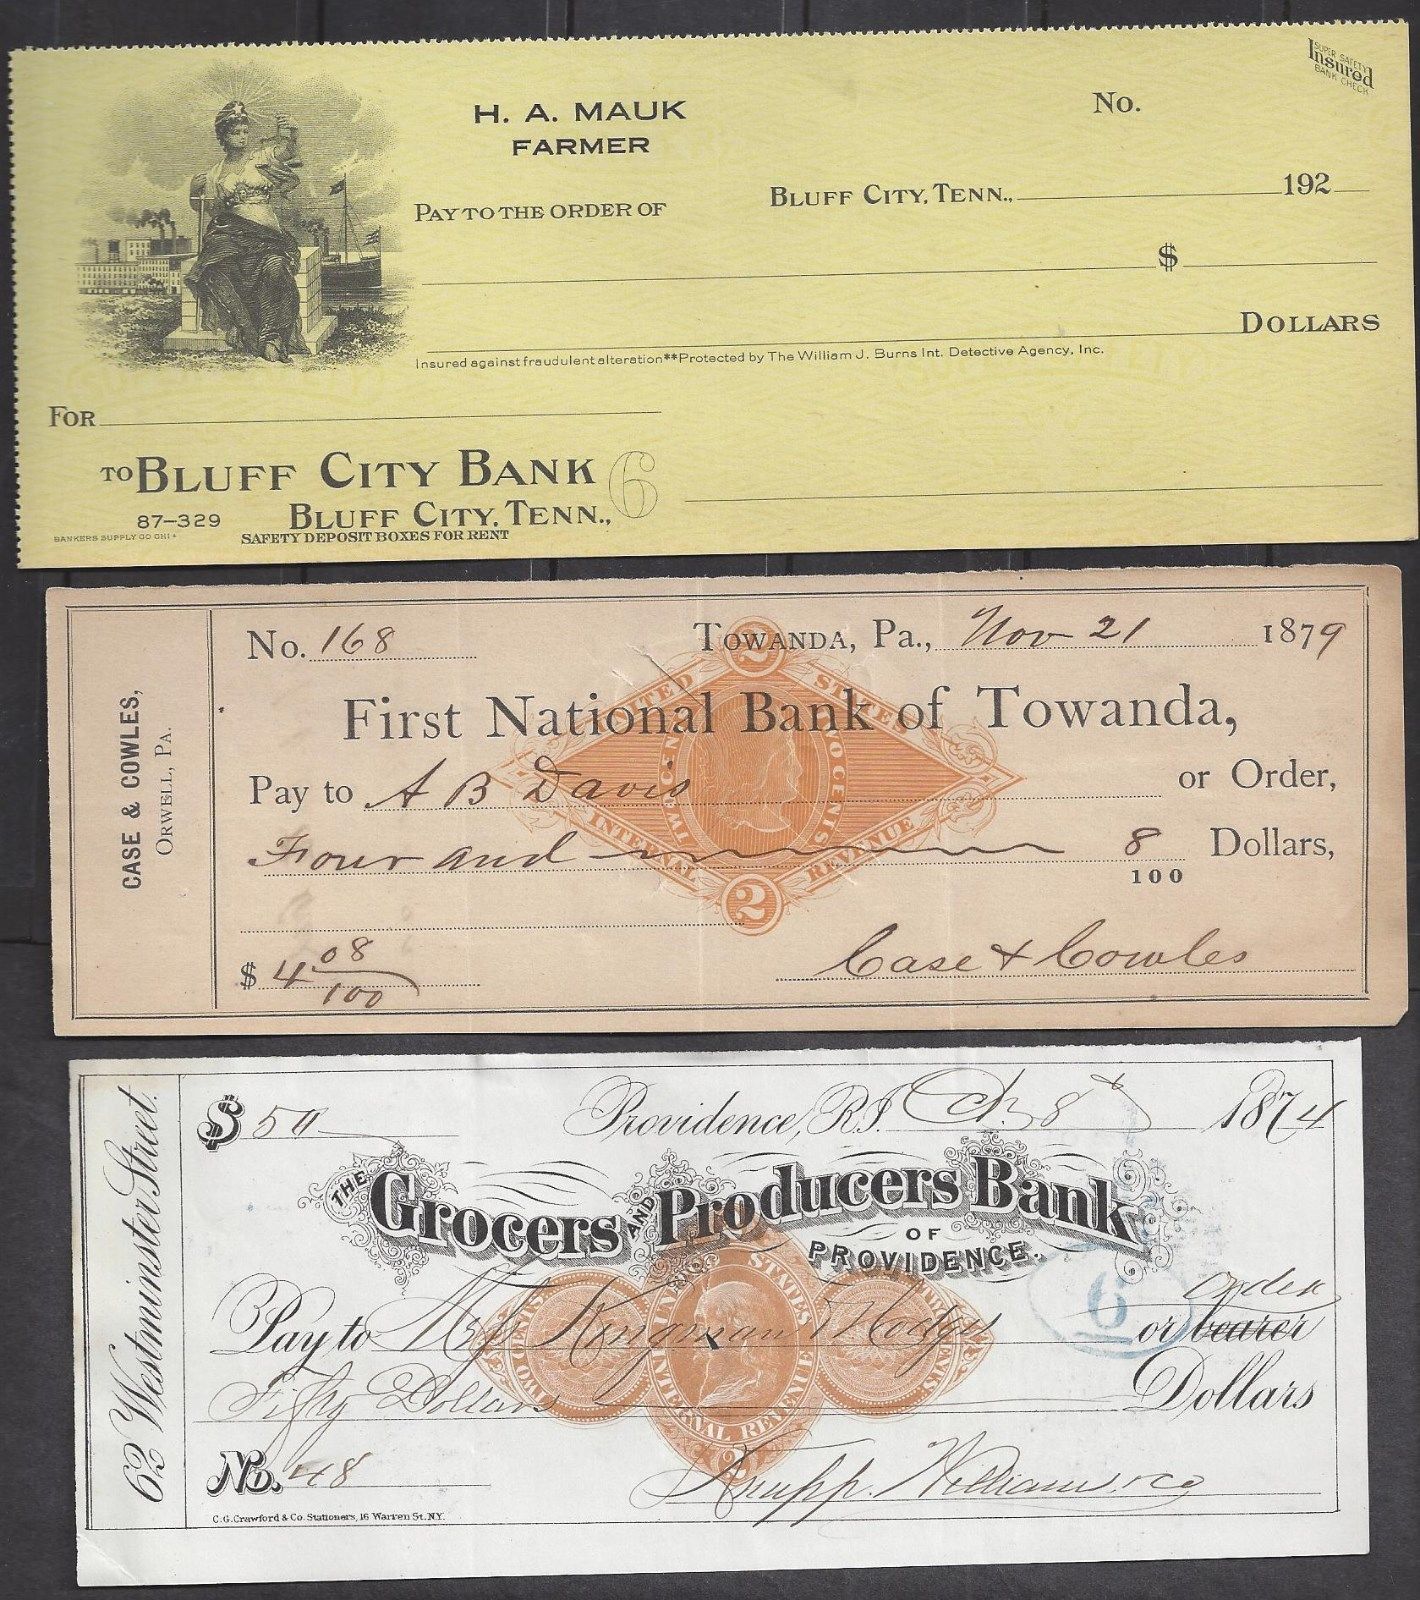 SUPER SAFETY
Insured
BANK CHECK
H. A. MAUK
FARMER
No.
BLUFF CITY, TENN., 192
PAY TO THE ORDER OF
$
DOLLARS
Insured against fraudulent alteration**Protected by The William J. Burns Int. Detective Agency, Inc.
FOR
TO BLUFF CITY BANK
6
87-329 BLUFF CITY, TENN.,
BANKERS SUPPLY CO CHI
SAFETY DEPOSIT BOXES FOR RENT
CASE & COWLES,
ORWELL, PA.
No. 168
TOWANDA, Pa., Nov 21 1879
2
UNITED STATES
First National Bank of Towanda,
Pay to A B Davis or Order,
TWO CENTS
INTERNAL REVENUE
Four and 8/100 Dollars,
2
$ 4 08/100
Case & Cowles
62 Westminster Street.
$ 50
Providence, R.I. 8 1874
THE Grocers AND Producers Bank
OF
PROVIDENCE.
UNITED STATES
order
Pay to Kingman or bearer
6
TWO CENTS
INTERNAL REVENUE
2
Fifty Dollars Dollars
No. 48
Williams & Co
C.G. Crawford & Co. Stationers, 16 Warren St. NY.